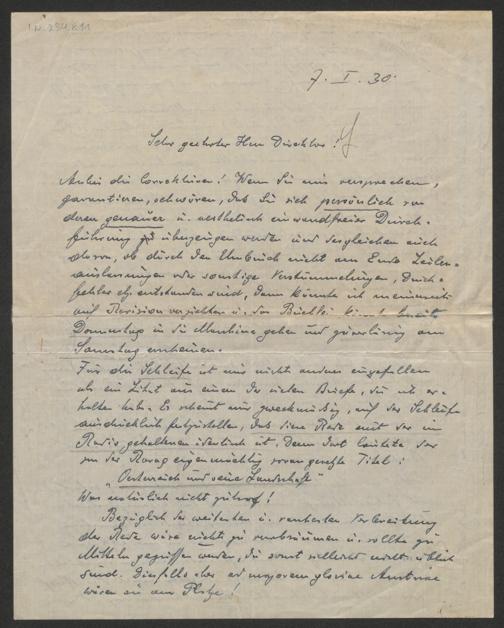 7. I. 30.
Sehr geehrter Herr Direktor!
Anbei die Correkturen! Wenn Sie mir versprechen,
garantieren, schwören, daß Sie sich persönlich von
deren genauer u. aesthetisch einwandfreier Durch-
führung zu überzeugen werden und desgleichen auch
davon, ob durch den Umbruch nicht am Ende Zeilen-
auslassungen oder sonstige Verstümmelungen, Druck-
fehler etc. entstanden sind, dann könnte ich meinerseits
auf Revision verzichten u. das Büchl bereits
Donnerstag in die Maschine gehen und zuverlässig am
Samstag erscheinen.
Für die Schleife ist mir nichts anderes eingefallen
als ein Zitat aus einem der vielen Briefe, die ich er-
halten habe. Es scheint mir zweckmäßig, auf der Schleife
ausdrücklich festzustellen, daß diese Rede mit der im
Radio gehaltenen identisch ist. Denn dort lautete der
von der Ravag eigenmächtig vorangesetzte Titel:
„Oesterreich und seine Landschaft"
Was natürlich nicht zutraf!
Bezüglich der weitesten u. Verbreitung
der Rede wäre nichts zu versäumen u. sollte zu
Mitteln gegriffen werden, die sonst vielleicht nicht üblich
sind. Diesfalls aber ad majorem gloriam Austriae
wären sie am Platze!